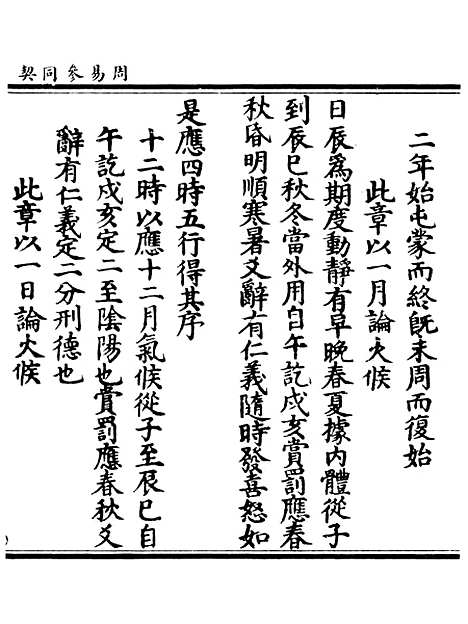 周易參同契
二年始屯蒙而終既未周而復始
此章以一月論火候
日辰為期度動靜有早晚春夏據內體從子
到辰巳秋冬當外用自午訖戌亥賞罰應春
秋昏明順寒暑爻辭有仁義隨時發喜怒如
是應四時五行得其序
十二時以應十二月氣候從子至辰巳自
午訖戌亥定二至陰陽也賞罰應春秋爻
辭有仁義定二分刑德也
此章以一日論火候